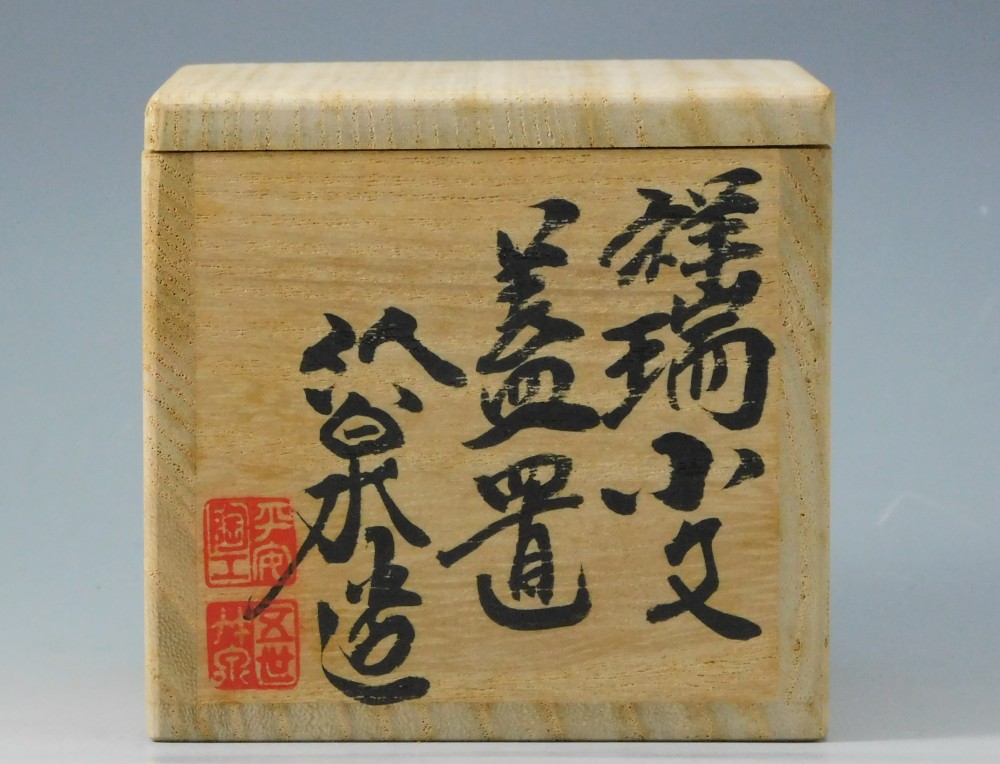 祥瑞小文
蓋置
竹泉造
平安陶工
五世竹泉